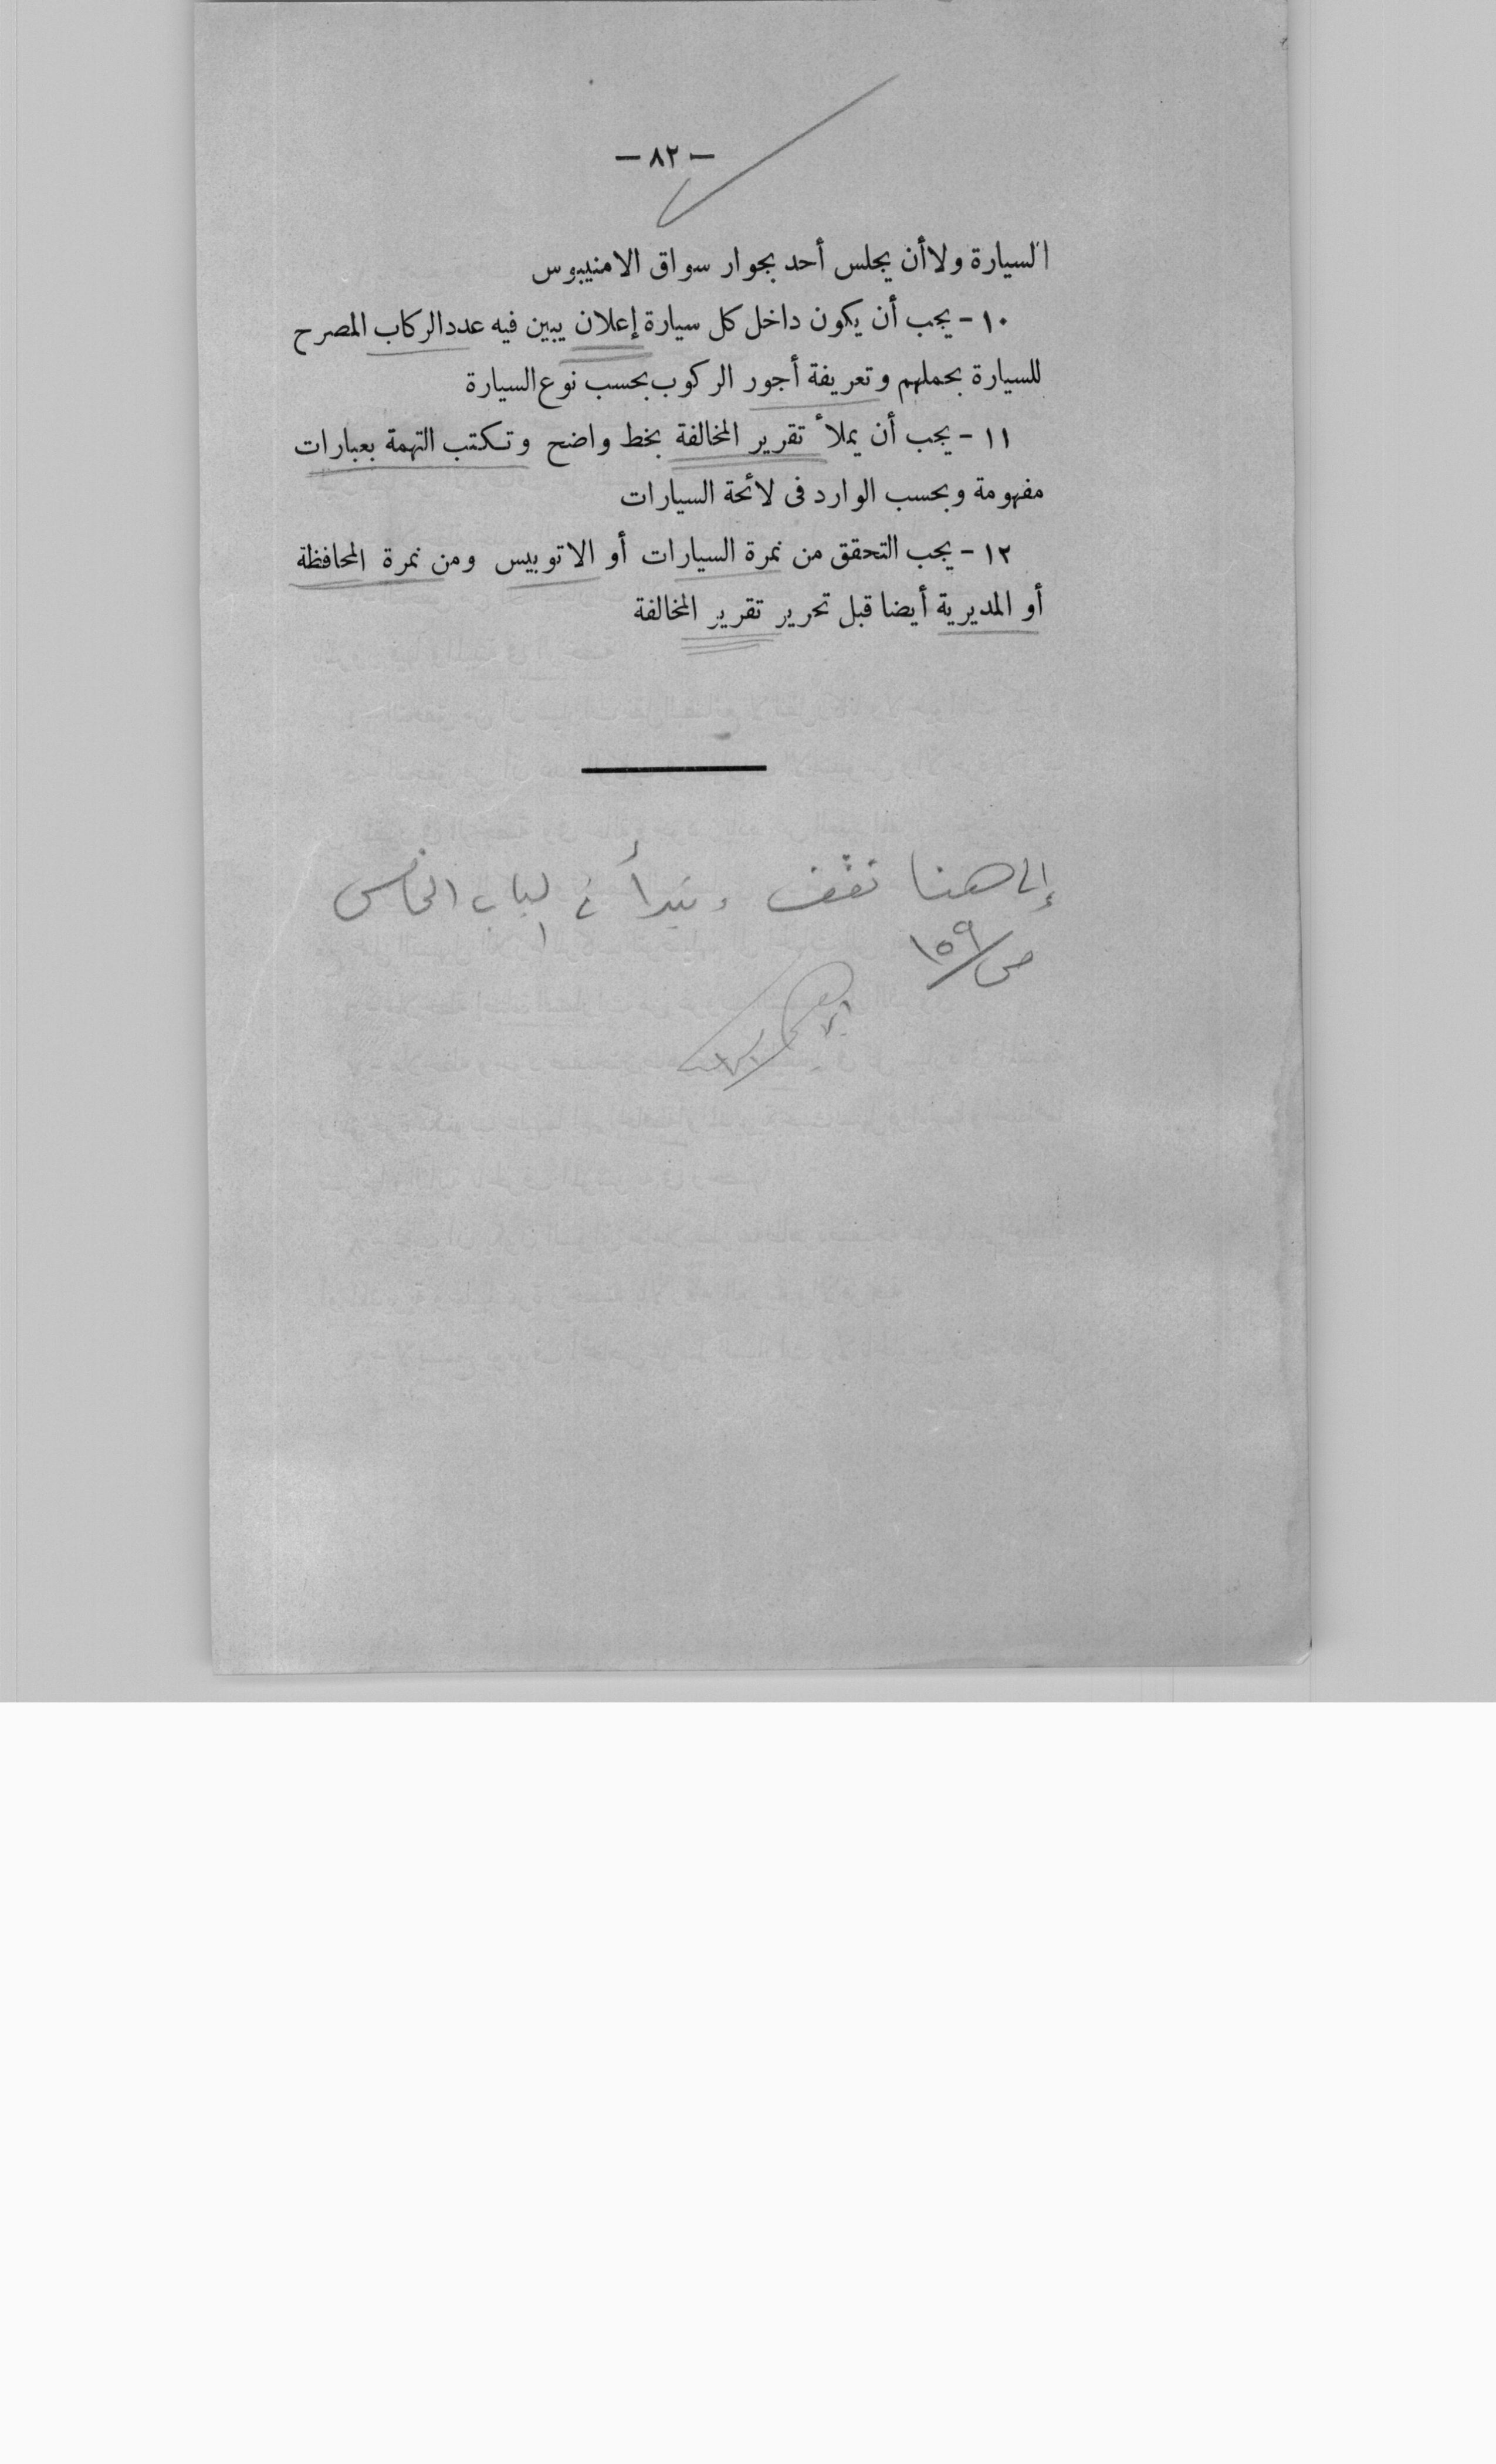 — ٨٢ —
السيارة ولا أن يجلس أحد بجوار سواق الامنيبوس
١٠ - يجب أن يكون داخل كل سيارة إعلان يبين فيه عدد الركاب المصرح
للسيارة بحملهم وتعريفة أجور الركوب بحسب نوع السيارة
١١ - يجب أن يملأ تقرير المخالفة بخط واضح وتكتب التهمة بعبارات
مفهومة وبحسب الوارد فى لائحة السيارات
١٢ - يجب التحقق من نمرة السيارات أو الاتوبيس ومن نمرة المحافظة
أو المديرية أيضا قبل تحرير تقرير المخالفة
إلى هنا نقف ونبدأ فى الباب الخامس
ص/١٥٩